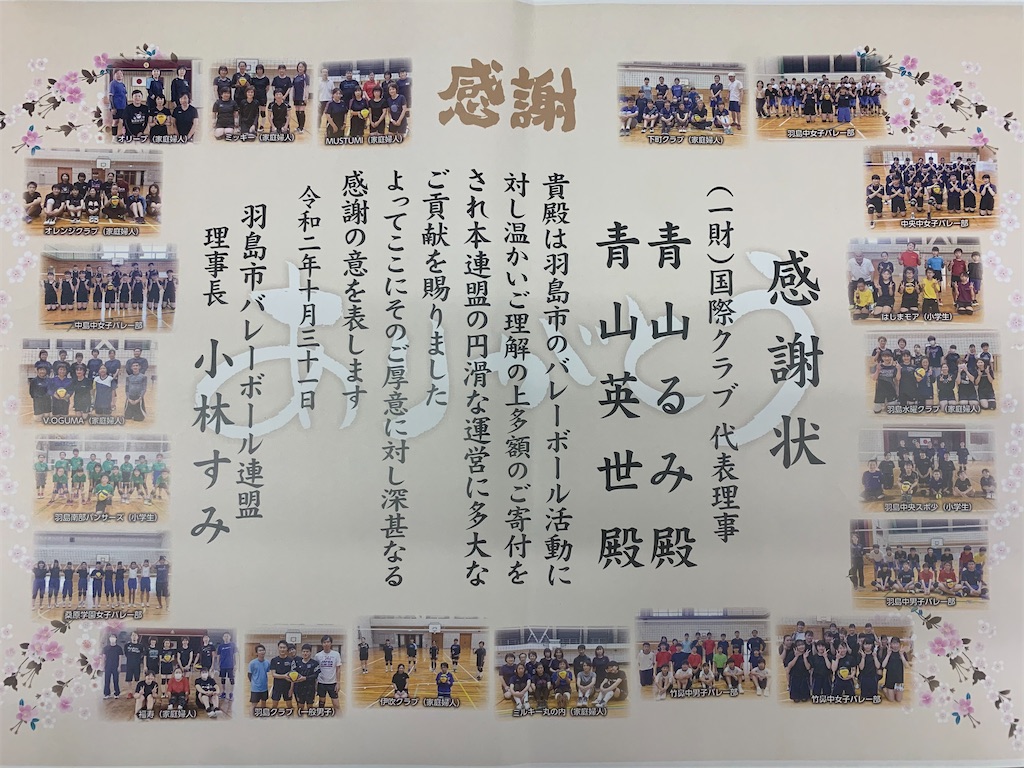 感謝
感謝状
(一財)国際クラブ 代表理事
青山るみ殿
青山英世殿
貴殿は羽島市のバレーボール活動に
対し温かいご理解の上多額のご寄付を
され本連盟の円滑な運営に多大な
ご貢献を賜りました
よってここにそのご厚意に対し深甚なる
感謝の意を表します
令和二年十月三十一日
羽島市バレーボール連盟
理事長 小林すみ
ありがとう
オリーブ(家庭婦人)
ミッキー(家庭婦人)
MUSTUMI(家庭婦人)
下町クラブ(家庭婦人)
羽島中女子バレー部
オレンジクラブ(家庭婦人)
中央中女子バレー部
中島中女子バレー部
はしまモア(小学生)
V.OGUMA(家庭婦人)
羽島水曜クラブ(家庭婦人)
羽島南部パンサーズ(小学生)
羽島中央スポ少(小学生)
桑原学園女子バレー部
羽島中男子バレー部
福寿(家庭婦人)
羽島クラブ(一般男子)
伊吹クラブ(家庭婦人)
ミルキー丸の内(家庭婦人)
竹鼻中男子バレー部
竹鼻中女子バレー部